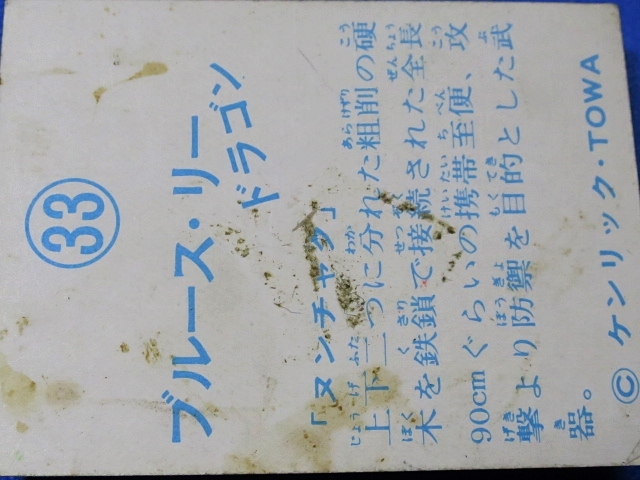 33
ブルース・リー
ドラゴン
「ヌンチャク」
上下二つに分れた粗削の硬
木を鉄鎖で接続された全長
90cmぐらいの携帯至便、攻
撃より防禦を目的とした武
器。
© ケンリック・TOWA